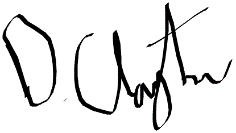 D Clayton